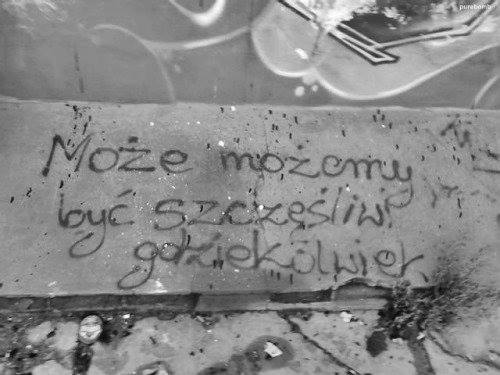 purebomb
Może możemy
być szczęśliwi
gdziekolwiek